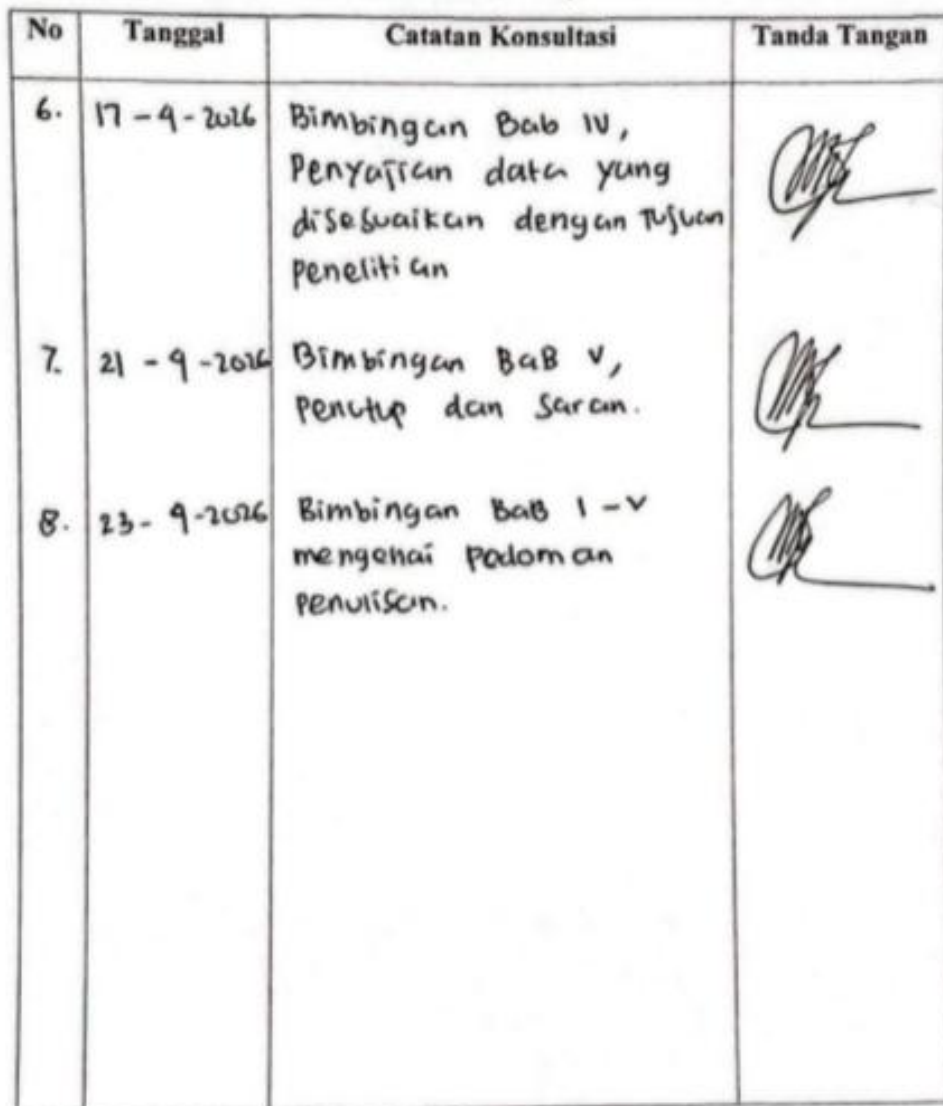 No Tanggal Catatan Konsultasi Tanda Tangan
6. 17 - 9 - 2026 Bimbingan Bab IV,
Penyajian data yang
disesuaikan dengan Tujuan
Penelitian
7. 21 - 9 - 2026 Bimbingan BaB V,
Penutup dan Saran.
8. 23 - 9 - 2026 Bimbingan BaB I - V
mengenai pedoman
Penulisan.